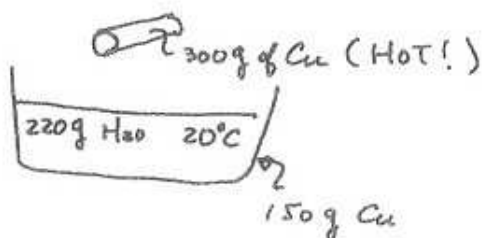 300g of Cu (HOT!)
220g H20 20°C
150g Cu